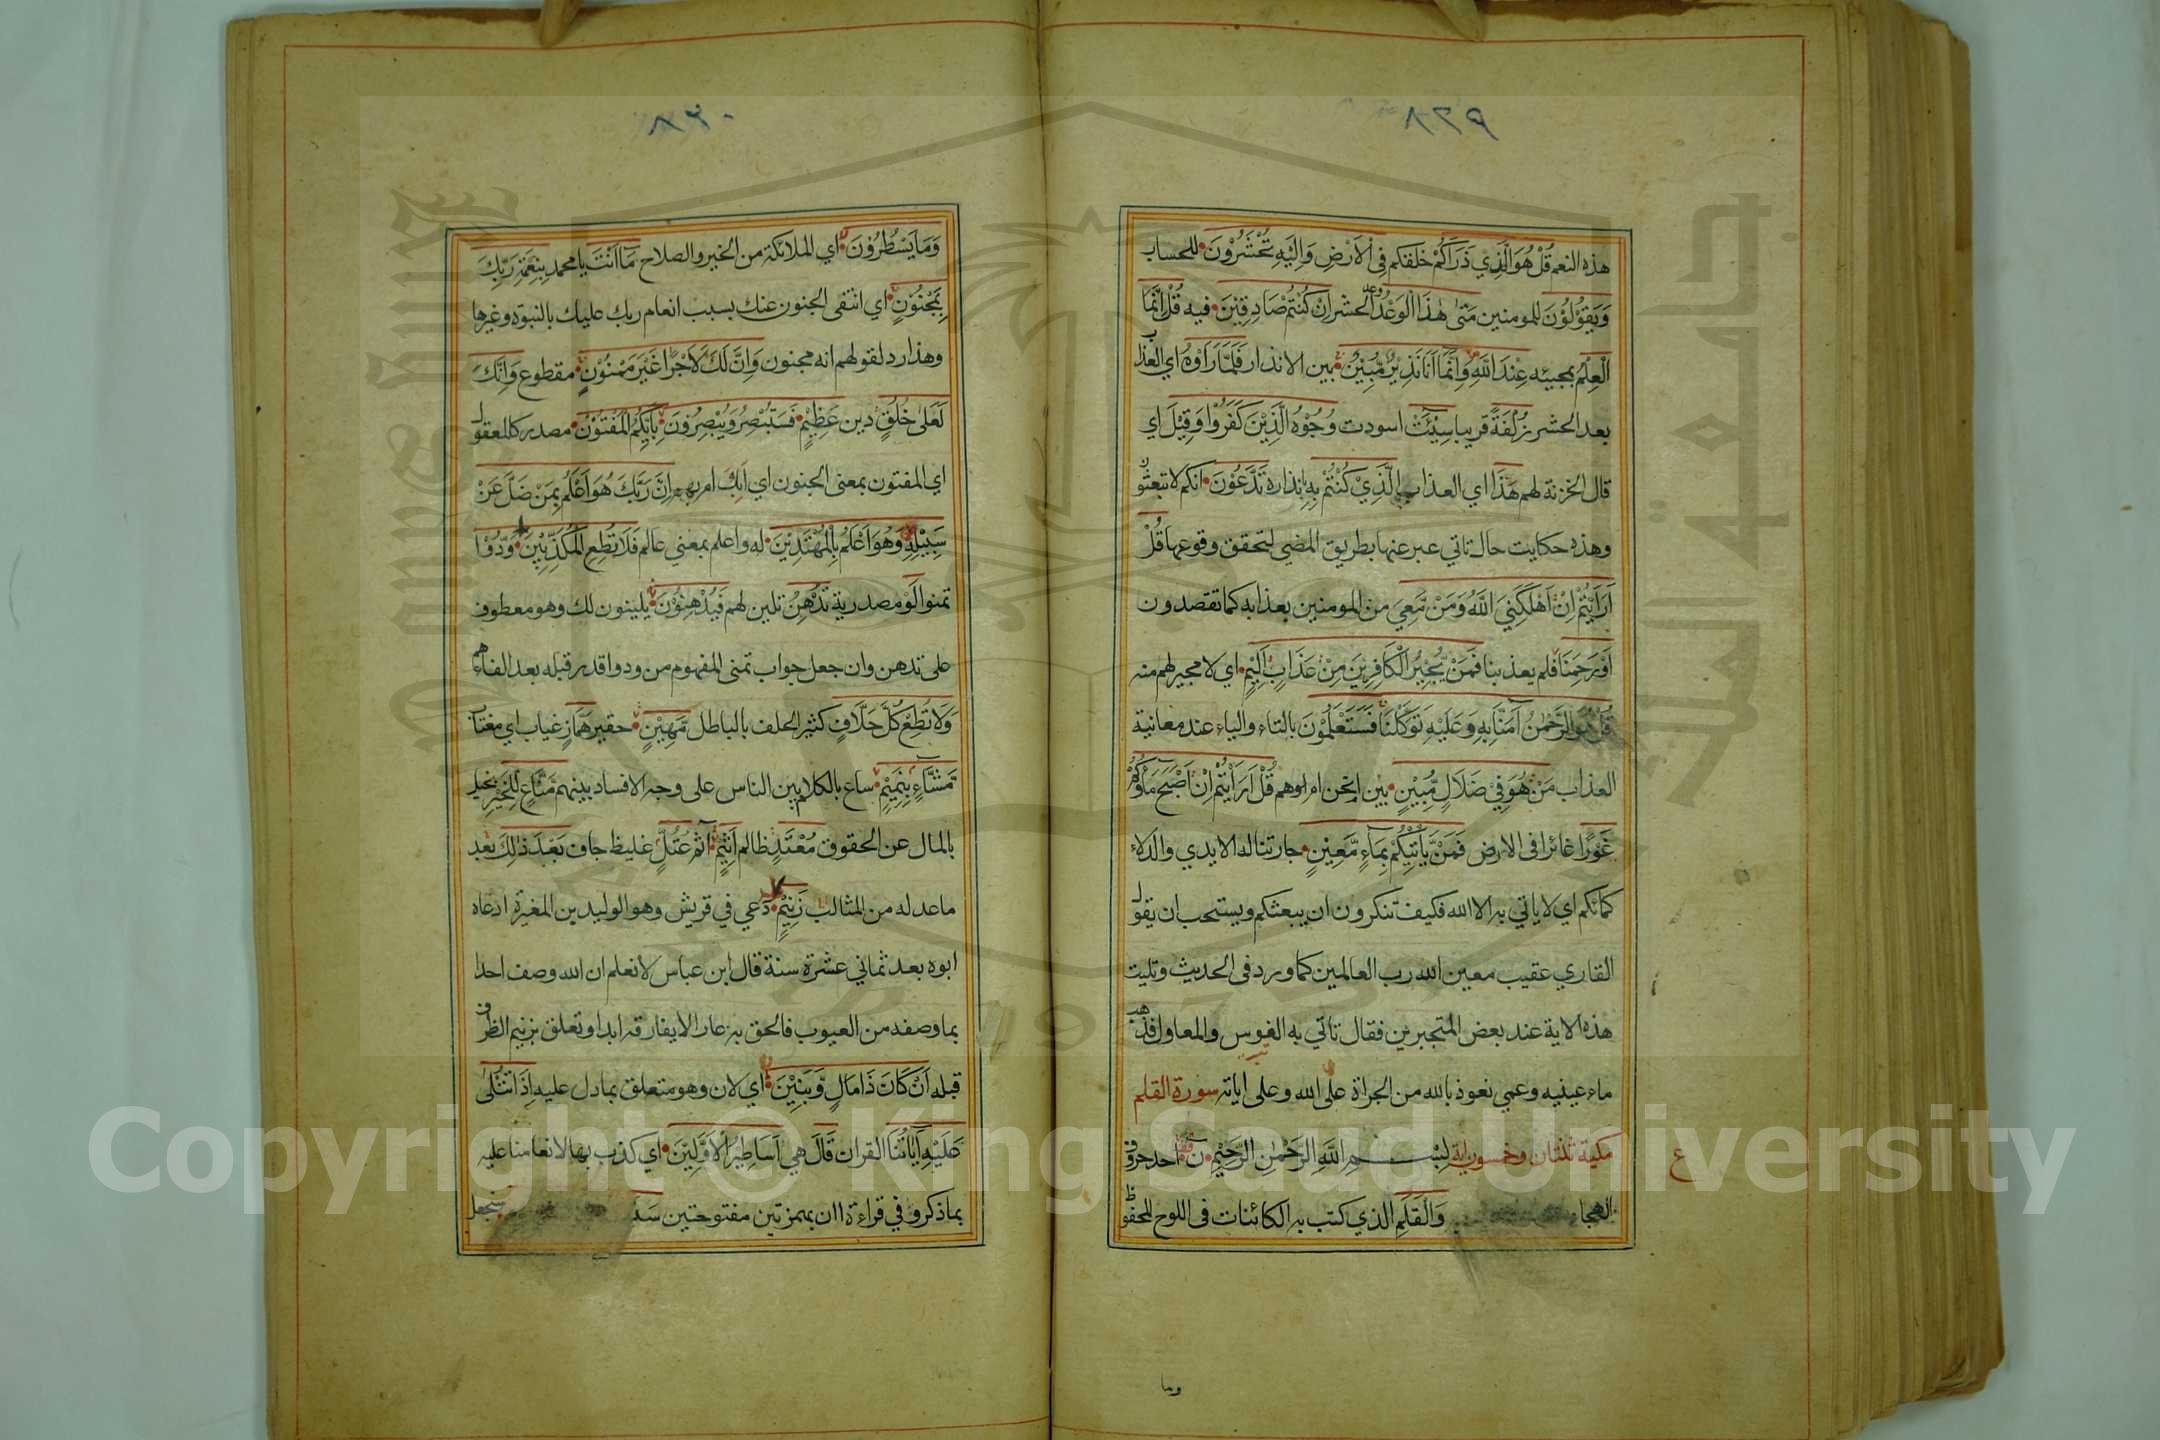 ٨٢٩
هذه النعم قُلْ هُوَ الَّذِي ذَرَاَكُمْ خلقكم فِى الْاَرْضِ وَاِلَيْهِ تُحْشَرُوْنَ للحساب
وَيَقُوْلُوْنَ للمومنين مَتٰى هٰذَا الْوَعْدُ وعد الحشر اِنْ كُنْتُمْ صَادِقِيْنَ فيه قُلْ اِنَّمَا
الْعِلْمُ بمجيئه عِنْدَ اللّٰهِ وَاِنَّمَا اَنَا نَذِيْرٌ مُّبِيْنٌ بين الانذار فَلَمَّا رَاَوْهُ اي العذاب
بعد الحشر زُلْفَةً قريبا سِيْئَتْ اسودت وُجُوْهُ الَّذِيْنَ كَفَرُوْا وَقِيْلَ اي
قال الخزنة لهم هٰذَا اي العذاب الَّذِيْ كُنْتُمْ بِهِ بانذاره تَدَّعُوْنَ انكم لا تبعثون
وهذه حكايت حال تاتي عبر عنها بطريق المضي لتحقق وقوعها قُلْ
اَرَاَيْتُمْ اِنْ اَهْلَكَنِيَ اللّٰهُ وَمَنْ مَّعِيَ من المومنين بعذابه كما تقصدون
اَوْ رَحِمَنَا فلم يعذبنا فَمَنْ يُّجِيْرُ الْكَافِرِيْنَ مِنْ عَذَابٍ اَلِيْمٍ اي لا مجير لهم منه
قُلْ هُوَ الرَّحْمٰنُ اٰمَنَّا بِهِ وَعَلَيْهِ تَوَكَّلْنَا فَسَتَعْلَمُوْنَ بالتاء والياء عند معانية
العذاب مَنْ هُوَ فِيْ ضَلَالٍ مُّبِيْنٍ بين انحن ام انتم ام هم قُلْ اَرَاَيْتُمْ اِنْ اَصْبَحَ مَاؤُكُمْ
غَوْرًا غائرا فى الارض فَمَنْ يَّاْتِيْكُمْ بِمَاءٍ مَّعِيْنٍ جار تناله الايدي والدلاء
كمائكم اي لا ياتي به الا الله فكيف تنكرون ان يبعثكم ويستحب ان يقول
القاري عقيب معين الله رب العالمين كما ورد فى الحديث وتليت
هذه الاية عند بعض المتجبرين فقال تاتي به الفوس والمعاول فذهب
ماء عينيه وعمي نعوذ بالله من الجراة على الله وعلى اياته سورة القلم
مكية ثنتان وخمسون اية بِسْمِ اللّٰهِ الرَّحْمٰنِ الرَّحِيْمِ ن احد حروف
الهجا وَالْقَلَمِ الذي كتب به الكائنات فى اللوح المحفوظ
وما
٨٣٠
وَمَا يَسْطُرُوْنَ اي الملائكة من الخير والصلاح مَا اَنْتَ يا محمد بِنِعْمَةِ رَبِّكَ
بِمَجْنُوْنٍ اي انتفى الجنون عنك بسبب انعام ربك عليك بالنبوة وغيرها
وهذا رد لقولهم انه مجنون وَاِنَّ لَكَ لَاَجْرًا غَيْرَ مَمْنُوْنٍ مقطوع وَاِنَّكَ
لَعَلٰى خُلُقٍ دين عَظِيْمٍ فَسَتُبْصِرُ وَيُبْصِرُوْنَ بِاَيِّكُمُ الْمَفْتُوْنُ مصدر كالمعقول
اي المفتون بمعنى الجنون اي اَبِكَ ام بهم اِنَّ رَبَّكَ هُوَ اَعْلَمُ بِمَنْ ضَلَّ عَنْ
سَبِيْلِهِ وَهُوَ اَعْلَمُ بِالْمُهْتَدِيْنَ له واعلم بمعني عالم فَلَا تُطِعِ الْمُكَذِّبِيْنَ وَدُّوْا
تمنوا لَوْ مصدرية تُدْهِنُ تلين لهم فَيُدْهِنُوْنَ يلينون لك وهو معطوف
على تدهن وان جعل جواب تمنى المفهوم من ودوا قدر قبله بعد الفاء هم
وَلَا تُطِعْ كُلَّ حَلَّافٍ كثير الحلف بالباطل مَهِيْنٍ حقير هَمَّازٍ غياب اي مغتاب
مَشَّاءٍ بِنَمِيْمٍ ساع بالكلام بين الناس على وجه الافساد بينهم مَنَّاعٍ لِلْخَيْرِ بخيل
بالمال عن الحقوق مُعْتَدٍ ظالم اَثِيْمٍ اثم عُتُلٍّ غليظ جاف بَعْدَ ذٰلِكَ بعد
ما عد له من المثالب زَنِيْمٍ دعي في قريش وهو الوليد بن المغيرة ادعاه
ابوه بعد ثماني عشرة سنة قال ابن عباس لا نعلم ان الله وصف احدا
بما وصفه من العيوب فالحق به عارا لا يفارقه ابدا وتعلق بزنيم الظرف
قبله اَنْ كَانَ ذَا مَالٍ وَّبَنِيْنَ اي لان وهو متعلق بما دل عليه اِذَا تُتْلٰى
عَلَيْهِ اٰيَاتُنَا القران قَالَ هي اَسَاطِيْرُ الْاَوَّلِيْنَ اي كذب بها لانعامنا عليه
بما ذكر وفي قراءة اان بهمزتين مفتوحتين سنجعل
Copyright © King Saud University